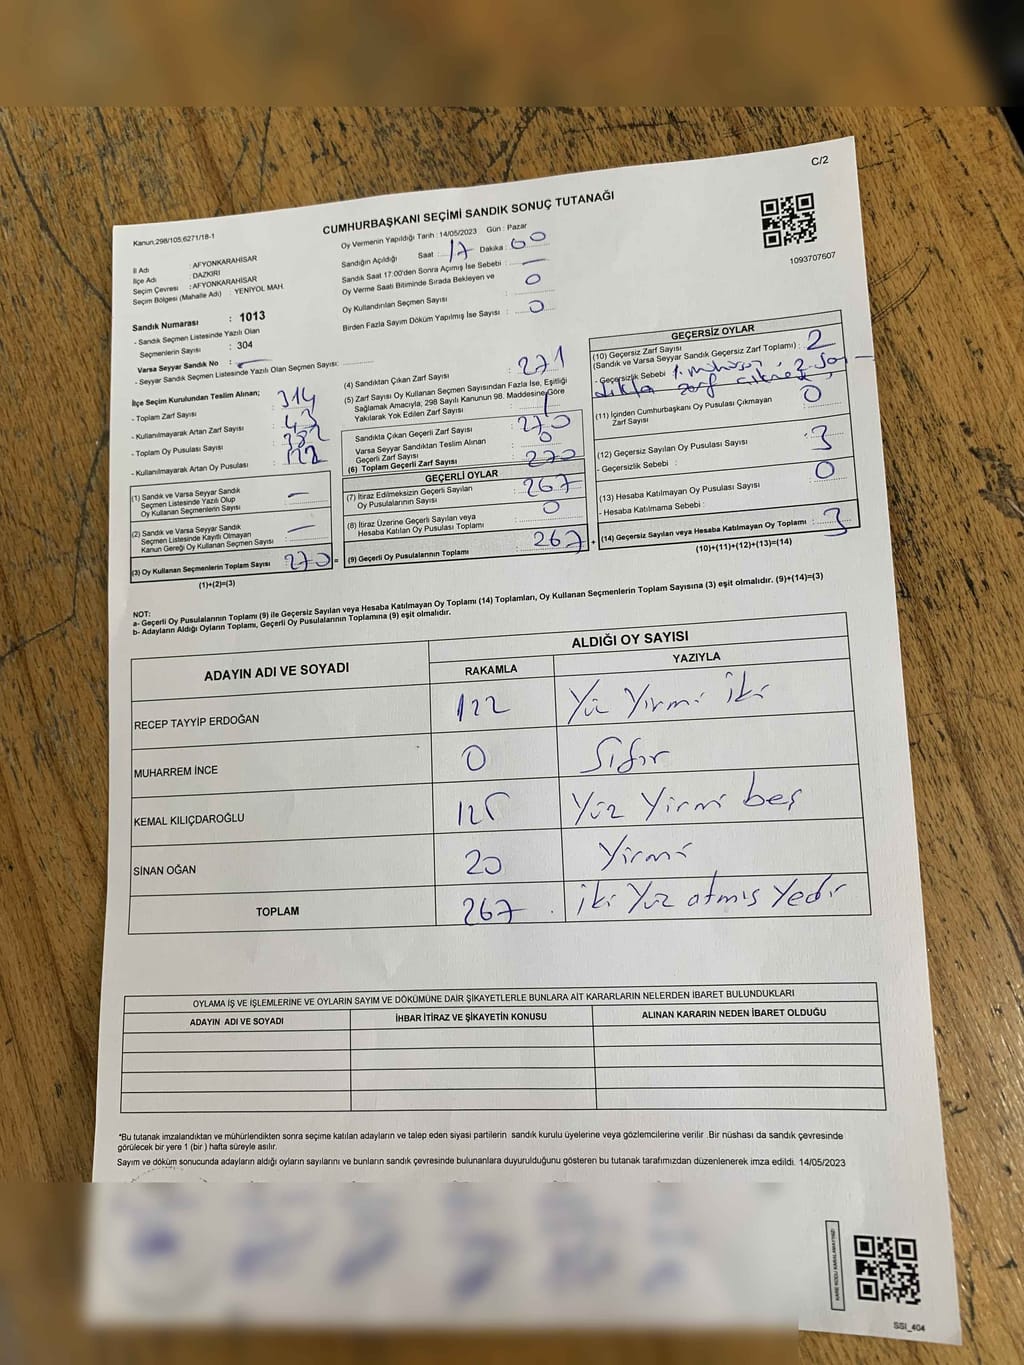 C/2
CUMHURBAŞKANI SEÇİMİ SANDIK SONUÇ TUTANAĞI
Kanun;298/105;6271/18-1
Oy Vermenin Yapıldığı Tarih :14/05/2023 Gün : Pazar
Sandığın Açıldığı Saat : 17 Dakika : 00
Sandık Saat 17:00'den Sonra Açımış İse Sebebi : —
Oy Verme Saati Bitiminde Sırada Bekleyen ve
Oy Kullandırılan Seçmen Sayısı : 0
Birden Fazla Sayım Döküm Yapılmış İse Sayısı : 0
1093707607
İl Adı : AFYONKARAHİSAR
İlçe Adı : DAZKIRI
Seçim Çevresi : AFYONKARAHİSAR
Seçim Bölgesi (Mahalle Adı) : YENİYOL MAH.
Sandık Numarası : 1013
- Sandık Seçmen Listesinde Yazılı Olan
Seçmenlerin Sayısı : 304
Varsa Seyyar Sandık No : —
- Seyyar Sandık Seçmen Listesinde Yazılı Olan Seçmen Sayısı:
İlçe Seçim Kurulundan Teslim Alınan;
- Toplam Zarf Sayısı : 314
- Kullanılmayarak Artan Zarf Sayısı : 43
- Toplam Oy Pusulası Sayısı :
- Kullanılmayarak Artan Oy Pusulası :
(1) Sandık ve Varsa Seyyar Sandık
Seçmen Listesinde Yazılı Olup
Oy Kullanan Seçmen Sayısı : —
(2) Sandık ve Varsa Seyyar Sandık
Seçmen Listesinde Kayıtlı Olmayan
Kanun Gereği Oy Kullanan Seçmen Sayısı : —
(3) Oy Kullanan Seçmenlerin Toplam Sayısı : 270 =
(1)+(2)=(3)
(4) Sandıktan Çıkan Zarf Sayısı : 271
(5) Zarf Sayısı Oy Kullanan Seçmen Sayısından Fazla İse, Eşitliği
Sağlamak Amacıyla; 298 Sayılı Kanunun 98. Maddesine Göre
Yakılarak Yok Edilen Zarf Sayısı : 1
Sandıkta Çıkan Geçerli Zarf Sayısı : 270
Varsa Seyyar Sandıktan Teslim Alınan
Geçerli Zarf Sayısı : 0
(6) Toplam Geçerli Zarf Sayısı : 270
GEÇERLİ OYLAR
(7) İtiraz Edilmeksizin Geçerli Sayılan
Oy Pusulalarının Sayısı : 267
(8) İtiraz Üzerine Geçerli Sayılan veya
Hesaba Katılan Oy Pusulası Toplamı : 0
(9) Geçerli Oy Pusulalarının Toplamı : 267 +
GEÇERSİZ OYLAR
(10) Geçersiz Zarf Sayısı
(Sandık ve Varsa Seyyar Sandık Geçersiz Zarf Toplamı) : 2
- Geçersizlik Sebebi
(11) İçinden Cumhurbaşkanı Oy Pusulası Çıkmayan
Zarf Sayısı : 0
(12) Geçersiz Sayılan Oy Pusulası Sayısı : 3
- Geçersizlik Sebebi :
(13) Hesaba Katılmayan Oy Pusulası Sayısı : 0
- Hesaba Katılmama Sebebi :
(14) Geçersiz Sayılan veya Hesaba Katılmayan Oy Toplamı : 3
(10)+(11)+(12)+(13)=(14)
NOT:
a- Geçerli Oy Pusulalarının Toplamı (9) ile Geçersiz Sayılan veya Hesaba Katılmayan Oy Toplamı (14) Toplamları, Oy Kullanan Seçmenlerin Toplam Sayısına (3) eşit olmalıdır. (9)+(14)=(3)
b- Adayların Aldığı Oyların Toplamı, Geçerli Oy Pusulalarının Toplamına (9) eşit olmalıdır.
ADAYIN ADI VE SOYADI
ALDIĞI OY SAYISI
RAKAMLA YAZIYLA
RECEP TAYYİP ERDOĞAN 122 Yüz Yirmi iki
MUHARREM İNCE 0 Sıfır
KEMAL KILIÇDAROĞLU 125 Yüz Yirmi beş
SİNAN OĞAN 20 Yirmi
TOPLAM 267 iki Yüz atmış Yedi
OYLAMA İŞ VE İŞLEMLERİNE VE OYLARIN SAYIM VE DÖKÜMÜNE DAİR ŞİKAYETLERLE BUNLARA AİT KARARLARIN NELERDEN İBARET BULUNDUKLARI
ADAYIN ADI VE SOYADI İHBAR İTİRAZ VE ŞİKAYETİN KONUSU ALINAN KARARIN NEDEN İBARET OLDUĞU
*Bu tutanak imzalandıktan ve mühürlendikten sonra seçime katılan adayların ve talep eden siyasi partilerin sandık kurulu üyelerine veya gözlemcilerine verilir .Bir nüshası da sandık çevresinde
görülecek bir yere 1 (bir ) hafta süreyle asılır.
Sayım ve döküm sonucunda adayların aldığı oyların sayılarını ve bunların sandık çevresinde bulunanlara duyurulduğunu gösteren bu tutanak tarafımızdan düzenlenerek imza edildi. 14/05/2023
KARE KODU KARALAMAYINIZ!
SSI_404